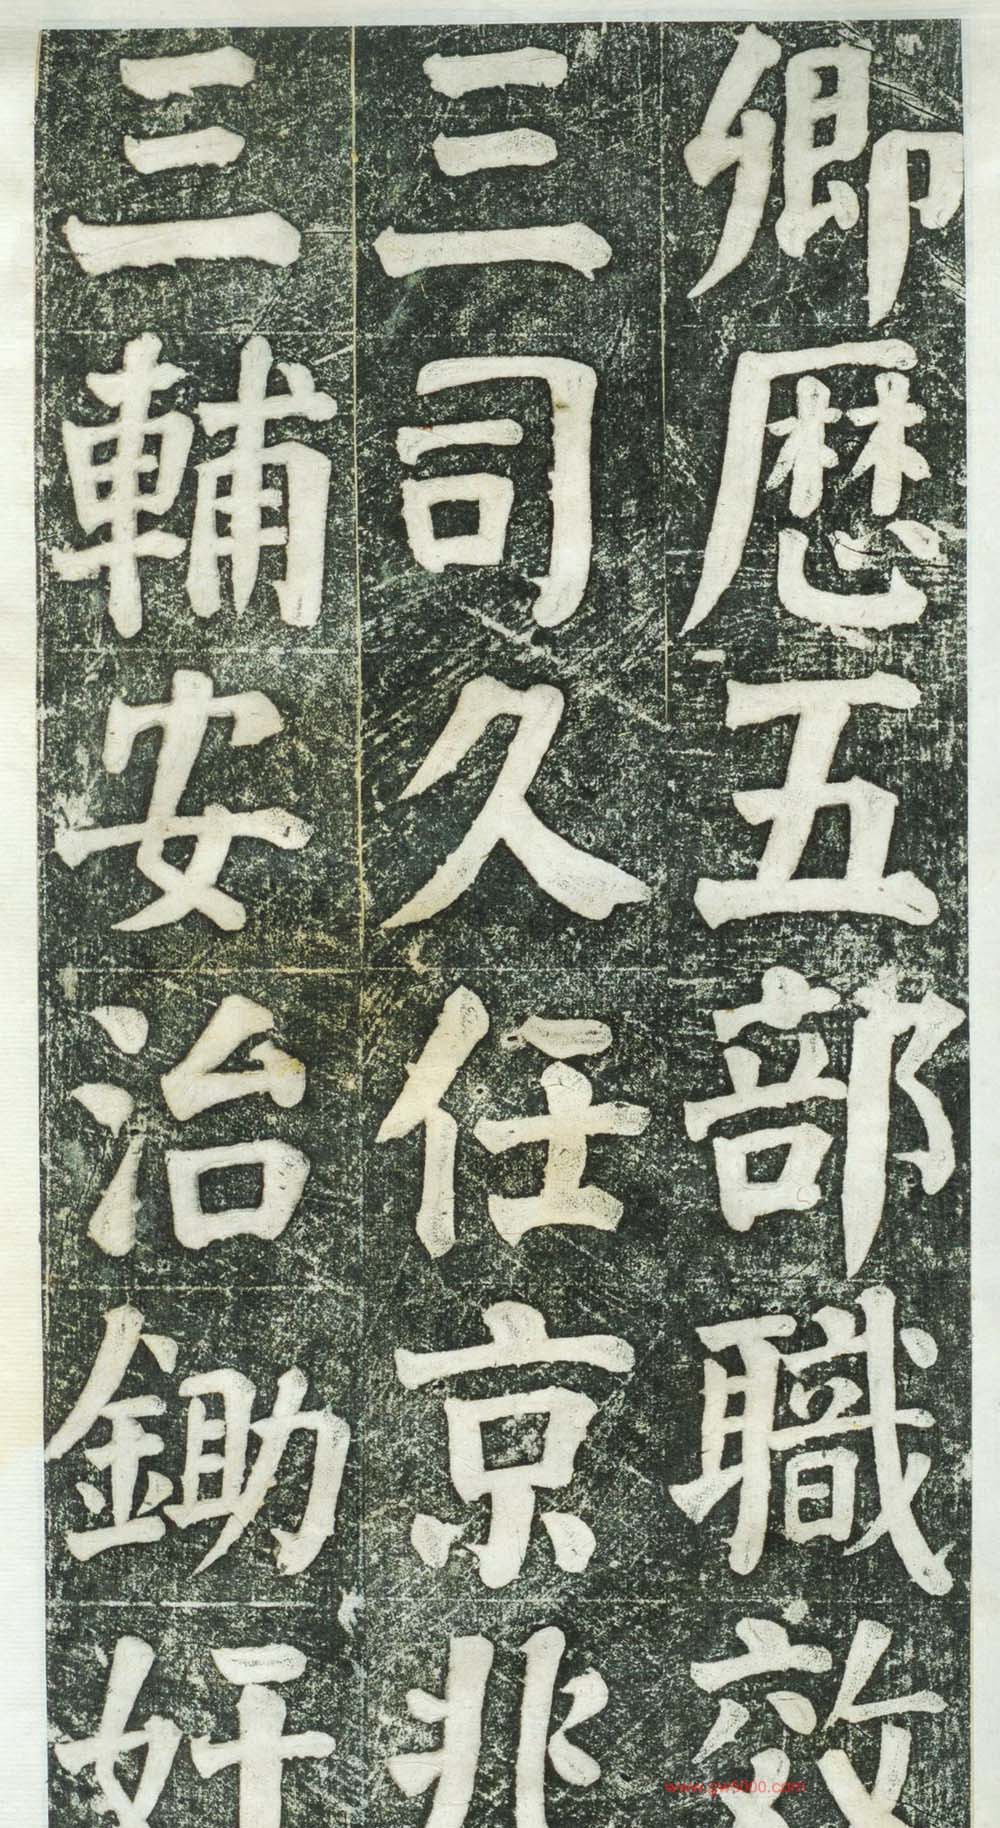 卿歷五部職效
三司久任京兆
三輔安治鋤奸
www.gw5000.com